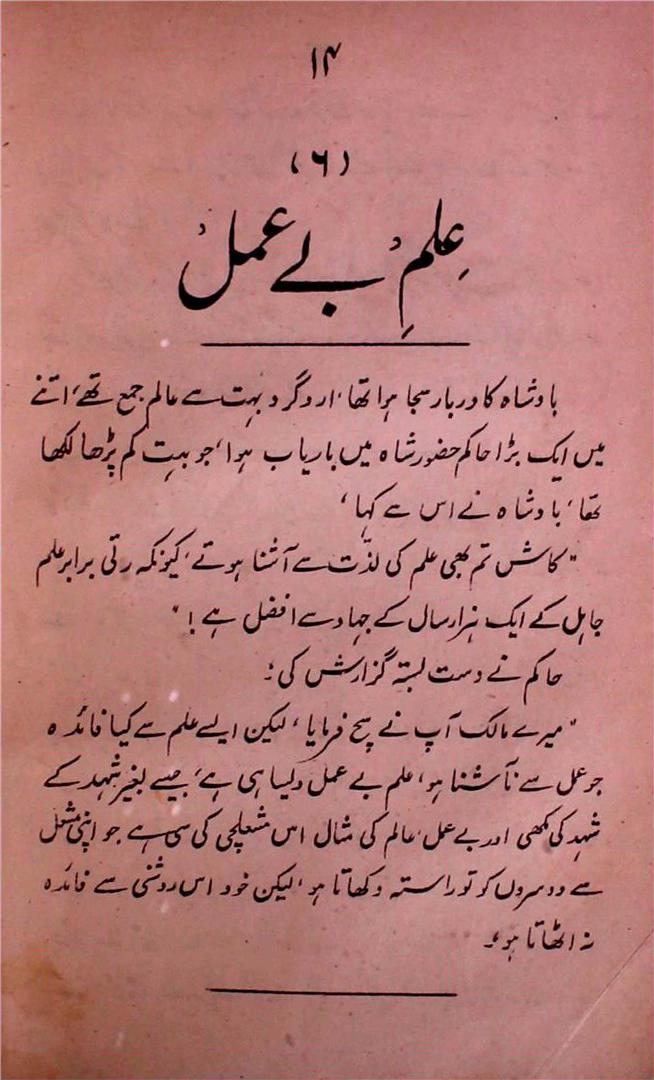 ۱۴
(۶)
عِلمِ بے عمل
بادشاہ کا دربار سجا ہوا تھا، اردگرد بہت سے عالم جمع تھے، اتنے
میں ایک بڑا حاکم حضور شاہ میں باریاب ہوا، جو بہت کم پڑھا لکھا
تھا، بادشاہ نے اس سے کہا،
"کاش تم بھی علم کی لذّت سے آشنا ہوتے، کیونکہ رتی برابر علم
جاہل کے ایک ہزار سال کے جہاد سے افضل ہے!"
حاکم نے دست بستہ گزارش کی:
"میرے مالک آپ نے سچ فرمایا، لیکن ایسے علم سے کیا فائدہ
جو عمل سے ناآشنا ہو، علم بے عمل ویسا ہی ہے، جیسے بغیر شہد کے
شہد کی مکھی اور بے عمل، عالم کی مثال اس مشعلچی کی سی ہے جو اپنی مشعل
سے دوسروں کو تو راستہ دکھاتا ہو، لیکن خود اس روشنی سے فائدہ
نہ اٹھاتا ہو"۔